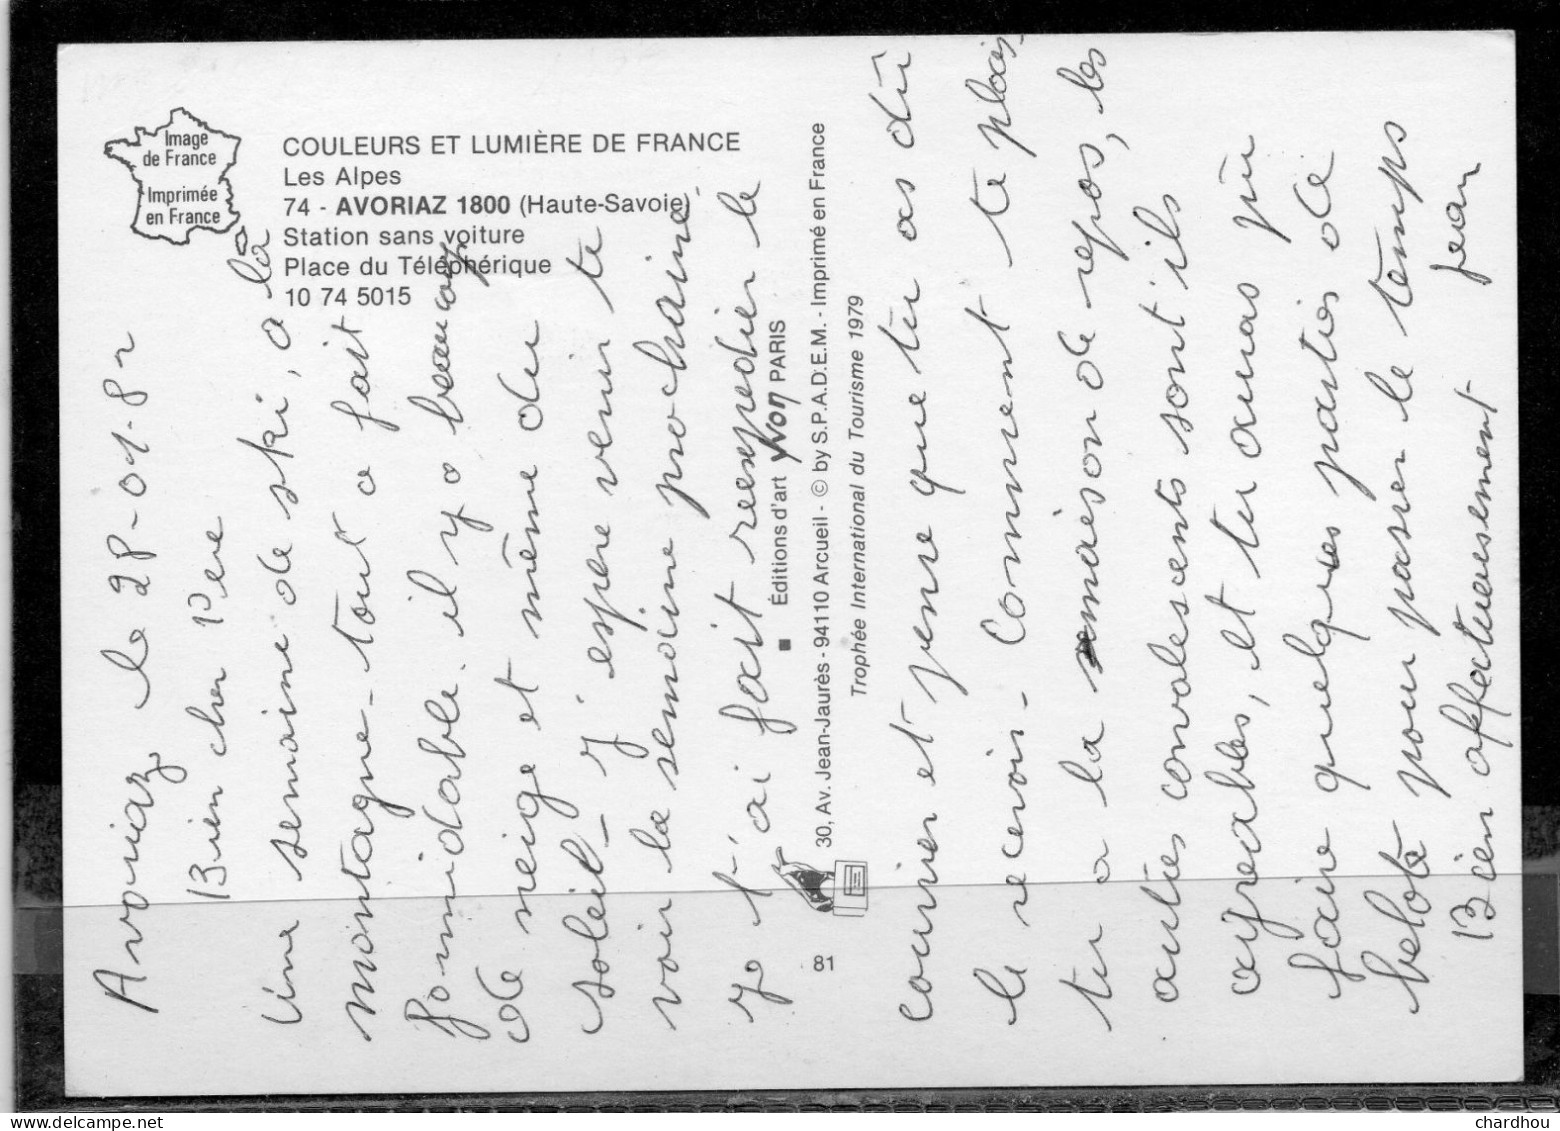 Image
de France
Imprimée
en France
COULEURS ET LUMIÈRE DE FRANCE
Les Alpes
74 - AVORIAZ 1800 (Haute-Savoie)
Station sans voiture
Place du Téléphérique
10 74 5015
Avoriaz le 28-01-82
Bien cher Père
Une semaine de ski, a la
montagne - tout a fait
formidable. il y a beaucoup
de neige et même du
soleil - j'espere venir te
voir la semaine prochaine
Je t'ai fait reexpedier le
courrier et pense que tu as dû
le recevoir - Comment te plais
tu a la maison de repos, les
autres convalescents sont ils
agreables, et tu auras pu
faire quelques parties de
belote pour passer le temps
Bien affectueusement Jean
Éditions d'art Yvon PARIS
30, Av. Jean-Jaurès - 94110 Arcueil - © by S.P.A.D.E.M. - Imprimé en France
Trophée International du Tourisme 1979
81
delcampe.net
chardhou